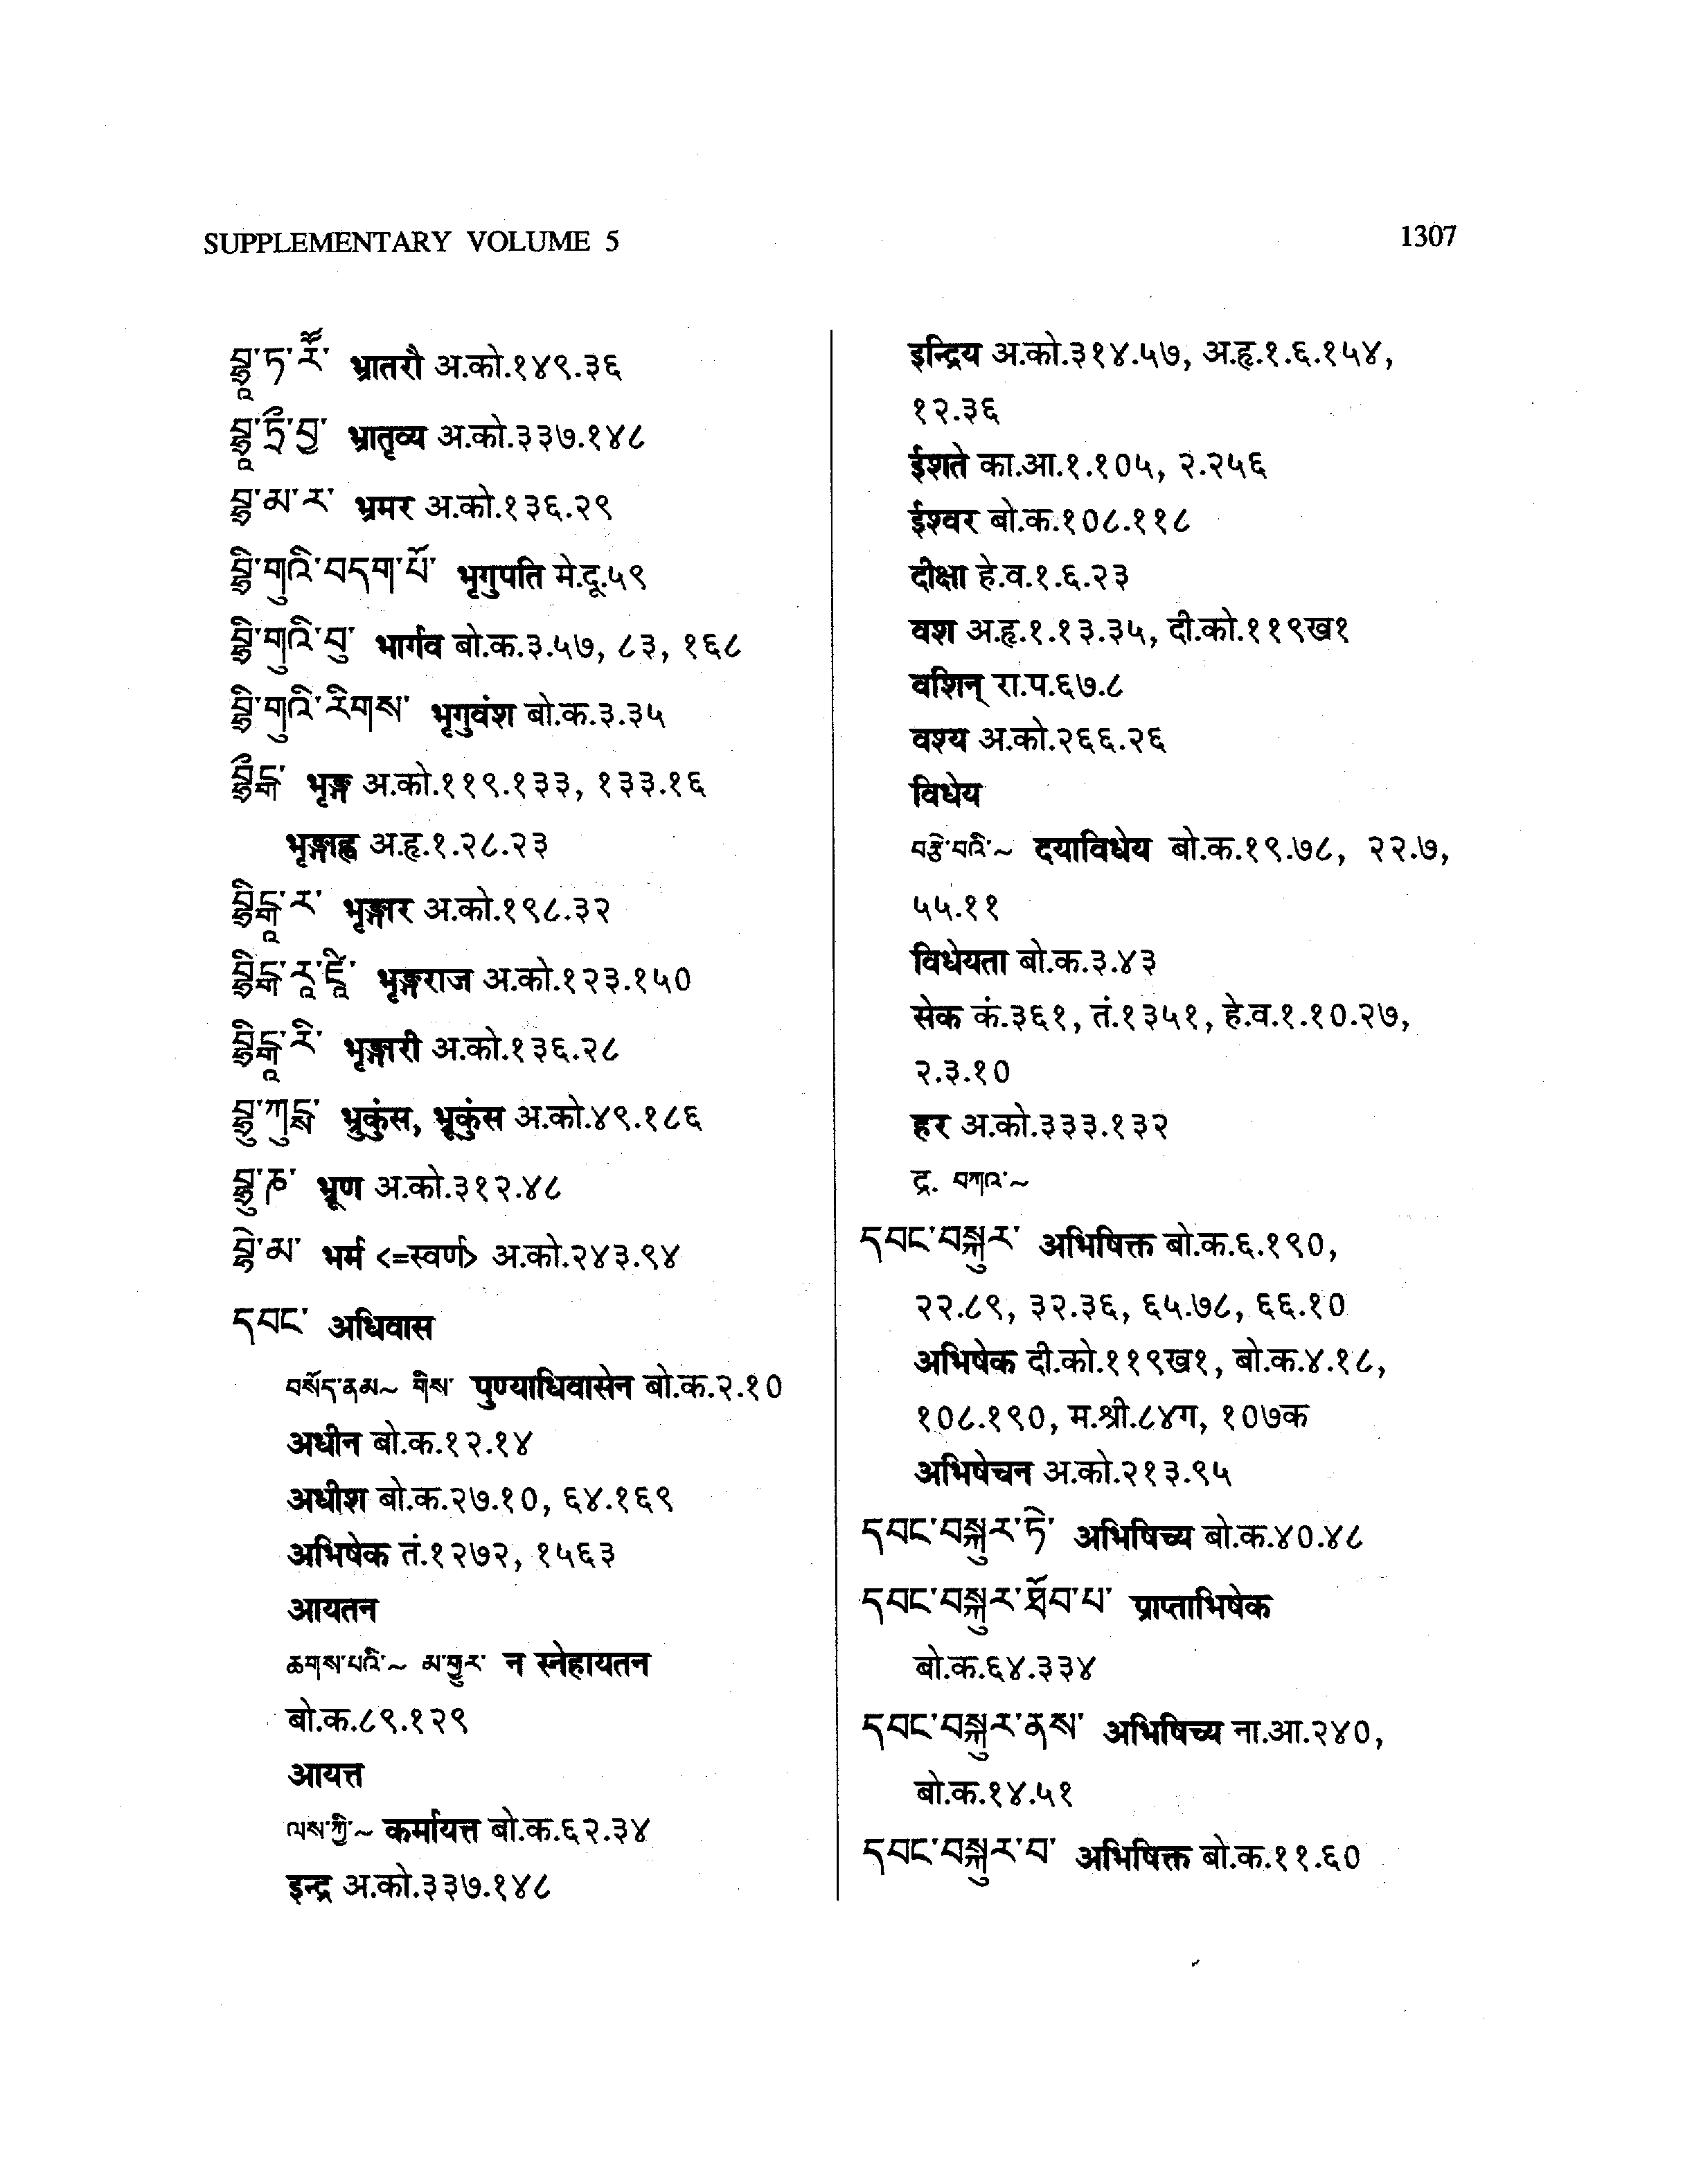 SUPPLEMENTARY VOLUME 5
1307
བྷྲཱ་ཏ་རཽ་ भ्रातरौ अ.को.१४९.३६
བྷྲཱ་ཏྲྀ་བྱ་ भ्रातृव्य अ.को.३३७.१४८
བྷྲ་མ་ར་ भ्रमर अ.को.१३६.२९
བྷྲི་གུའི་བདག་པོ་ भृगुपति मे.दू.५९
བྷྲི་གུའི་བུ་ भार्गव बो.क.३.५७, ८३, १६८
བྷྲི་གུའི་རིགས་ भृगुवंश बो.क.३.३५
भृङ्ग अ.को.११९.१३३, १३३.१६
भृङ्गाह्व अ.हृ.१.२८.२३
བྷྲིངྒཱ་ར་ भृङ्गार अ.को.१९८.३२
བྷྲིངྒ་རཱ་ཛཱི་ भृङ्गराज अ.को.१२३.१५०
བྷྲིངྒཱ་རི་ भृङ्गारी अ.को.१३६.२८
भ्रुकुंस, भ्रूकुंस अ.को.४९.१८६
བྷྲུ་ཎ་ भ्रूण अ.को.३१२.४८
བྷེ་མ་ भर्म <=स्वर्ण> अ.को.२४३.९४
དབང་ अधिवास
བསོད་ནམ~ གིས་ पुण्याधिवासेन बो.क.२.१०
अधीन बो.क.१२.१४
अधीश बो.क.२७.१०, ६४.१६९
अभिषेक तं.१२७२, १५६३
आयतन
ཆགས་པའི་~ མ་གྱུར་ न स्नेहायतन
बो.क.८९.१२९
आयत्त
ལས་ཀྱི་~ कर्मायत्त बो.क.६२.३४
इन्द्र अ.को.३३७.१४८
इन्द्रिय अ.को.३१४.५७, अ.हृ.१.६.१५४,
१२.३६
ईशते का.आ.१.१०५, २.२५६
ईश्वर बो.क.१०८.११८
दीक्षा हे.व.१.६.२३
वश अ.हृ.१.१३.३५, दी.को.११९ख१
वशिन् रा.प.६७.८
वश्य अ.को.२६६.२६
विधेय
བརྩེ་བའི་~ दयाविधेय बो.क.१९.७८, २२.७,
५५.११
विधेयता बो.क.३.४३
सेक कं.३६१, तं.१३५१, हे.व.१.१०.२७,
२.३.१०
हर अ.को.३३३.१३२
द्र. བཀའ་~
དབང་བསྐུར་ अभिषिक्त बो.क.६.१९०,
२२.८९, ३२.३६, ६५.७८, ६६.१०
अभिषेक दी.को.११९ख१, बो.क.४.१८,
१०८.१९०, म.श्री.८४ग, १०७क
अभिषेचन अ.को.२१३.९५
དབང་བསྐུར་ཏེ་ अभिषिच्य बो.क.४०.४८
དབང་བསྐུར་ཐོབ་པ་ प्राप्ताभिषेक
बो.क.६४.३३४
དབང་བསྐུར་ནས་ अभिषिच्य ना.आ.२४०,
बो.क.१४.५१
དབང་བསྐུར་བ་ अभिषिक्त बो.क.११.६०